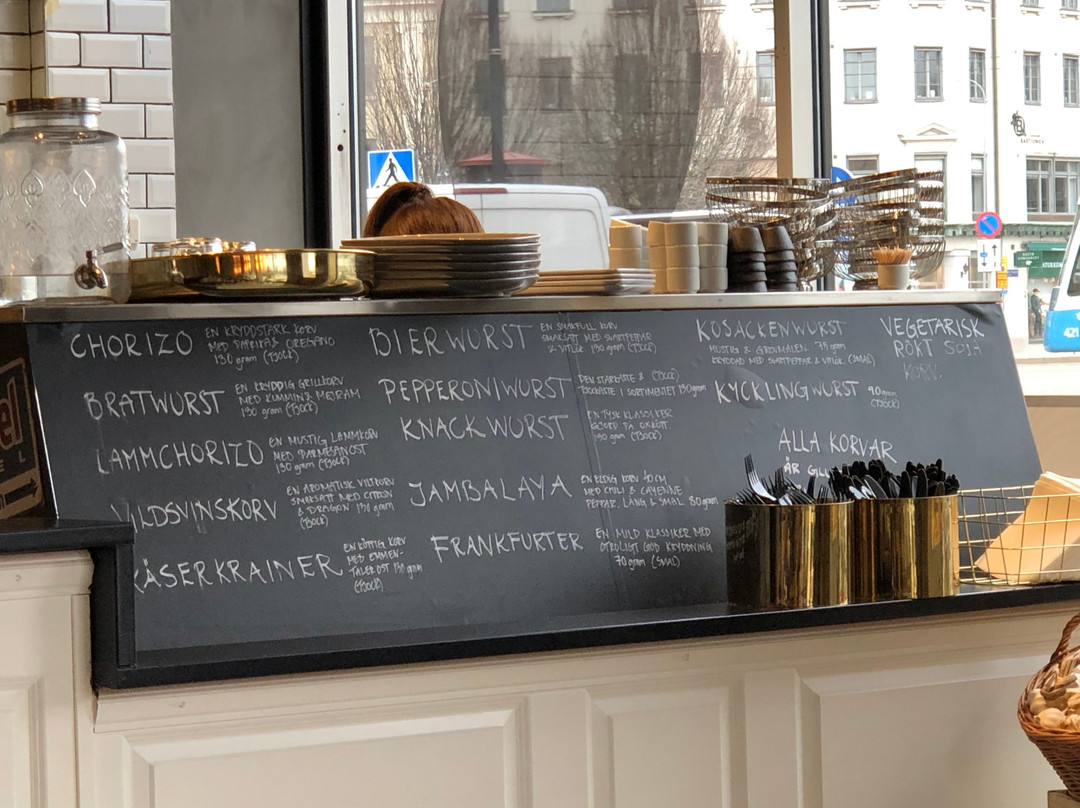 CHORIZO
EN KRYDDSTARK KORV
MED PAPRIKA & OREGANO
130 gram (TJOCK)
BRATWURST
EN KRYDDIG GRILLKORV
MED KUMMIN & MEJRAM
130 gram (TJOCK)
LAMMCHORIZO
EN MUSTIG LAMMKORV
MED PARMESANOST
130 gram (TJOCK)
VILDSVINSKORV
EN AROMATISK VILTKORV
SMAKSATT MED CITRON
& DRAGON 130 gram
(TJOCK)
KÄSERKRAINER
EN KÖTTIG KORV
MED EMMEN-
TALEROST 130 gram
(TJOCK)
BIERWURST
EN SMAKFULL KORV
SMAKSATT MED SVARTPEPPAR
& VITLÖK 130 gram (TJOCK)
PEPPERONIWURST
DEN STARKASTE & (TJOCK)
TJOCKASTE I SORTIMENTET 130 gram
KNACKWURST
EN TYSK KLASSIKER
GJORD PÅ OXKÖTT.
130 gram (TJOCK)
JAMBALAYA
EN ELDIG KORV 40 CM
MED CHILI & CAYENNE
PEPPAR, LÅNG & SMAL 80 gram
FRANKFURTER
EN MILD KLASSIKER MED
OTROLIGT GOD KRYDDNING
70 gram (SMAL)
KOSACKENWURST
MUSTIG & GROVMALEN 75 gram
KRYDDAD MED SVARTPEPPAR & VITLÖK. (SMAL)
KYCKLINGWURST
90 gram
(TJOCK)
VEGETARISK
RÖKT SOJA
KORV.
ALLA KORVAR
ÄR GLU